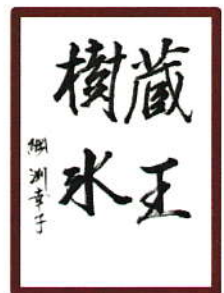 蔵王
樹氷
綱渕幸子